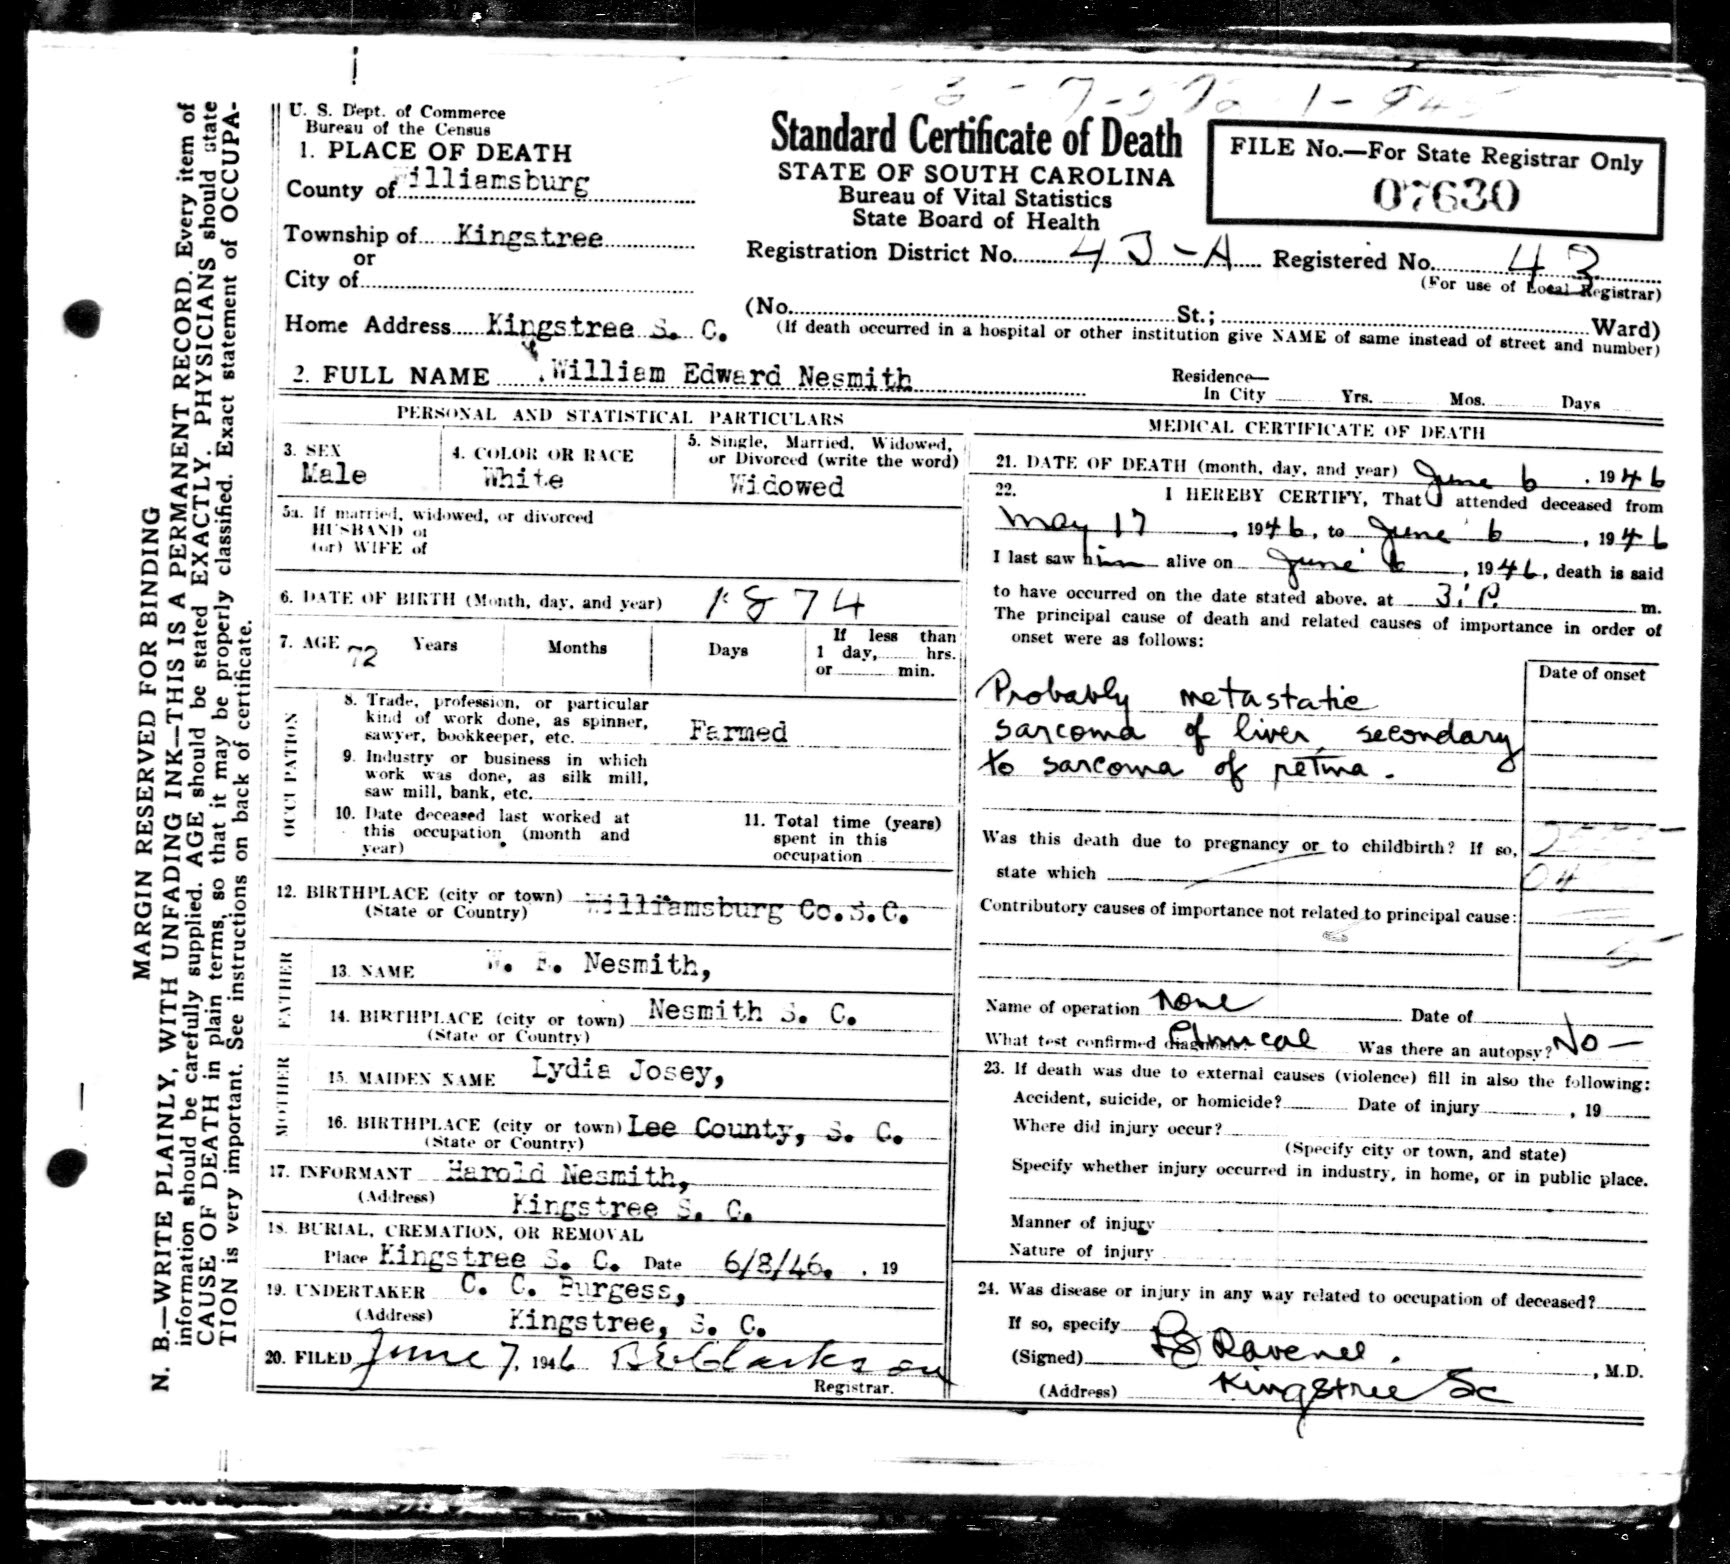 U. S. Dept. of Commerce
Bureau of the Census
1. PLACE OF DEATH
County of Williamsburg
Township of Kingstree
or
City of
Home Address Kingstree S. C.
Standard Certificate of Death
STATE OF SOUTH CAROLINA
Bureau of Vital Statistics
State Board of Health
FILE No.—For State Registrar Only
07630
Registration District No. 43-A Registered No. 43
(For use of Local Registrar)
(No. St.; Ward)
(If death occurred in a hospital or other institution give NAME of same instead of street and number)
2. FULL NAME William Edward Nesmith
Residence—
In City Yrs. Mos. Days
PERSONAL AND STATISTICAL PARTICULARS
3. SEX
Male
4. COLOR OR RACE
White
5. Single, Married, Widowed,
or Divorced (write the word)
Widowed
5a. If married, widowed, or divorced
HUSBAND of
(or) WIFE of
6. DATE OF BIRTH (Month, day, and year) 1874
7. AGE 72 Years Months Days
If less than
1 day, hrs.
or min.
OCCUPATION
8. Trade, profession, or particular
kind of work done, as spinner,
sawyer, bookkeeper, etc. Farmed
9. Industry or business in which
work was done, as silk mill,
saw mill, bank, etc.
10. Date deceased last worked at
this occupation (month and
year)
11. Total time (years)
spent in this
occupation
12. BIRTHPLACE (city or town) Williamsburg Co. S. C.
(State or Country)
FATHER
13. NAME W. E. Nesmith,
14. BIRTHPLACE (city or town) Nesmith S. C.
(State or Country)
MOTHER
15. MAIDEN NAME Lydia Josey,
16. BIRTHPLACE (city or town) Lee County, S. C.
(State or Country)
17. INFORMANT Harold Nesmith,
(Address) Kingstree S. C.
18. BURIAL, CREMATION, OR REMOVAL
Place Kingstree S. C. Date 6/8/46. , 19
19. UNDERTAKER C. C. Burgess,
(Address) Kingstree, S. C.
20. FILED June 7, 1946 Clarkson
Registrar.
MEDICAL CERTIFICATE OF DEATH
21. DATE OF DEATH (month, day, and year) June 6, 1946
22. I HEREBY CERTIFY, That I attended deceased from
May 17, 1946, to June 6, 1946
I last saw him alive on June 6, 1946, death is said
to have occurred on the date stated above, at 3:P. m.
The principal cause of death and related causes of importance in order of
onset were as follows:
Date of onset
Probably metastatic
sarcoma of liver, secondary
to sarcoma of retina.
Was this death due to pregnancy or to childbirth? If so,
state which
Contributory causes of importance not related to principal cause:
Name of operation None Date of
What test confirmed diagnosis? Clinical Was there an autopsy? No —
23. If death was due to external causes (violence) fill in also the following:
Accident, suicide, or homicide? Date of injury , 19
Where did injury occur?
(Specify city or town, and state)
Specify whether injury occurred in industry, in home, or in public place.
Manner of injury
Nature of injury
24. Was disease or injury in any way related to occupation of deceased?
If so, specify
(Signed) Ravenel. , M.D.
(Address) Kingstree SC
MARGIN RESERVED FOR BINDING
N. B.—WRITE PLAINLY, WITH UNFADING INK—THIS IS A PERMANENT RECORD. Every item of
information should be carefully supplied. AGE should be stated EXACTLY. PHYSICIANS should state
CAUSE OF DEATH in plain terms, so that it may be properly classified. Exact statement of OCCUPA-
TION is very important. See instructions on back of certificate.